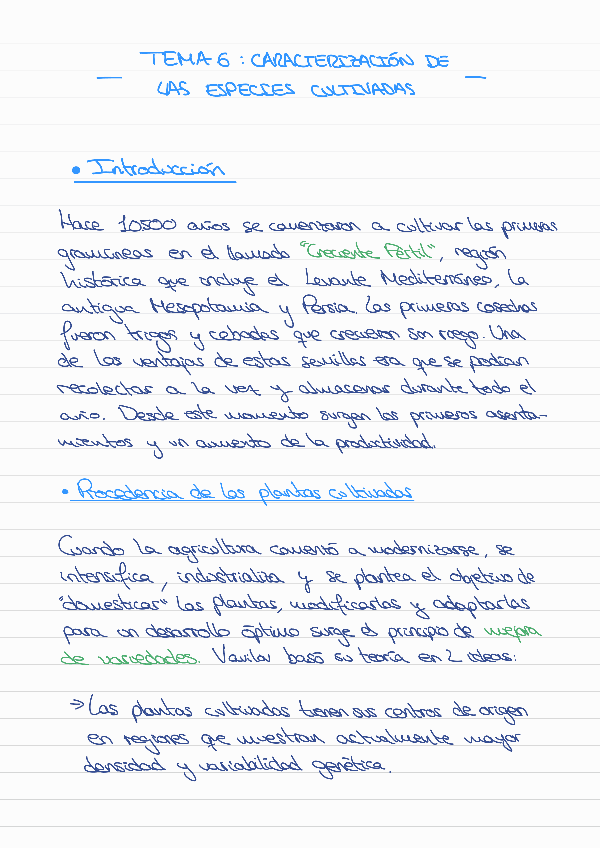 TEMA 6 : CARACTERIZACIÓN DE
LAS ESPECIES CULTIVADAS
• Introducción
Hace 10500 años se comenzaron a cultivar las primeras
gramíneas en el llamado "Creciente Fértil", región
histórica que incluye el Levante Mediterráneo, la
antigua Mesopotamia y Persia. Las primeras cosechas
fueron trigos y cebadas que crecieron sin riego. Una
de las ventajas de estas semillas era que se podían
recolectar a la vez y almacenar durante todo el
año. Desde este momento surgen los primeros asenta-
mientos y un aumento de la productividad.
• Procedencia de las plantas cultivadas
Cuando la agricultura comenzó a modernizarse, se
intensifica, industrializa y se plantea el objetivo de
"domesticar" las plantas, modificarlas y adaptarlas
para un desarrollo óptimo surge el principio de mejora
de variedades. Vavilov basó su teoría en 2 ideas:
→ Las plantas cultivadas tienen sus centros de origen
en regiones que muestran actualmente mayor
densidad y variabilidad genética.